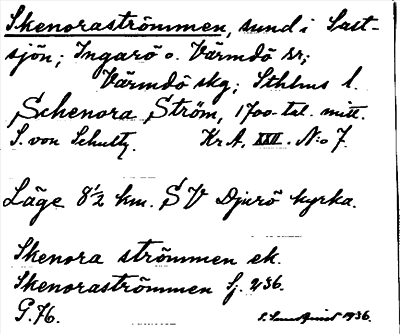 Skenoraströmmen, sund i Saxt-
sjön; Ingarö o. Värmdö snr;
Värmdö skg; Sthlms l.
Schenora Ström, 1700-tal. mitt.
S. von Schultz. Kr A, XXII. N:o 7.
Läge 8 1/2 km. SV Djurö kyrka.
Skenora strömmen ek.
Skenoraströmmen Sj. 236.
G. 76.
1936.